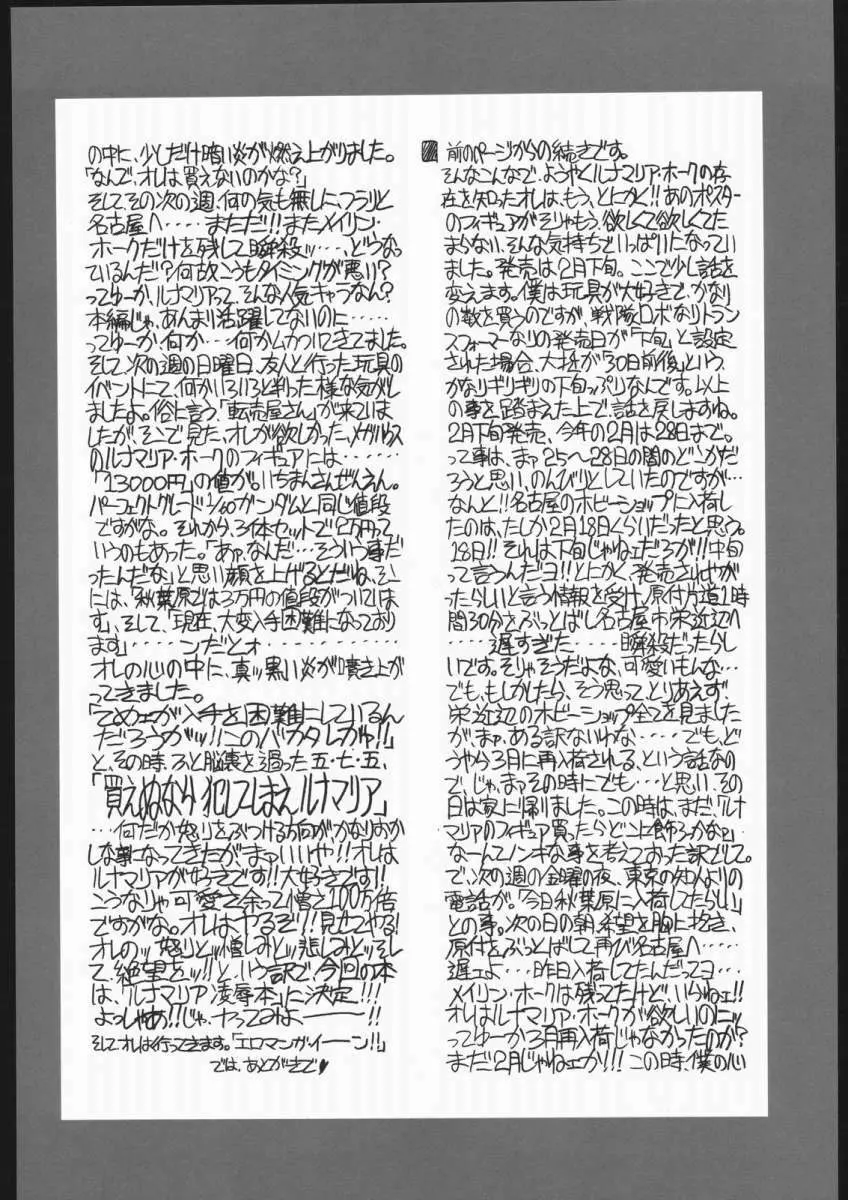 前のページからの続きです。
そんなこんなで、ようやくルナマリア・ホークの存
在を知ったオレは、もう、とにかく!!あのポスター
のフィギュアがそりゃもう、欲しくて欲しくてた
まらない、そんな気持ちでいっぱいになってい
ました。発売は2月下旬。ここで少し話を
変えます。僕は玩具が大好きで、かなり
の数を買うのですが、戦隊ロボなりトラン
スフォーマーなりの発売日が「下旬」と設定
された場合、大抵が「30日前後」という
かなりギリギリの下旬っぷりなんです。以上
の事を踏まえた上で話を戻しますね。
2月下旬発売、今年の2月は28日まで。
って事は、まァ25〜28日の間のどこかだ
ろうと思い、のんびりとしていたのですが…
なんと!!名古屋のホビーショップに入荷し
たのは、たしか2月18日くらいだったと思う。
18日!!それは下旬じゃねェだろが!!中旬
って言うんだヨ!!とにかく、発売されやが
ったらしいと言う情報を受け、原付片道1時
間30分をぶっとばし名古屋市栄近辺へ
……遅すぎた……瞬殺だったらし
いです。そりゃそうだよな、可愛いもんな…
でも、もしかしたら、そう思って、とりあえず
栄近辺のホビーショップ全てを見ました
が、まァ、ある訳ないわな……でも、ど
うやら3月に再入荷される、という話なの
で、じゃ、まァその時にでも…と思い、その
日は家に帰りました。この時は、まだ、「ルナ
マリアのフィギュア買ったらどこに飾ろかなァ」
なーんてノンキな事を考えておった訳でして。
で、次の週の金曜の夜、東京の知人よりの
電話が。「今日秋葉原に入荷したらしい」
との事。次の日の朝、希望を胸に抱き、
原付をぶっとばして再び名古屋へ……
遅ェよ…昨日入荷してたんだってヨ…
メイリン・ホークは残ってたけど、いらねェ!!
オレはルナマリア・ホークが欲しいのにッ
ってゆーか3月再入荷じゃなかったのか?
まだ2月じゃねェか!!!この時、僕の心
の中に、少しだけ暗い炎が燃え上がりました。
「なんで、オレは買えないのかな?」
そしてその次の週、何の気も無しに、フラリと
名古屋へ……まただ!!またメイリン・
ホークだけを残して瞬殺ッ…、どうなっ
ているんだ!?何故こうもタイミングが悪い?
ってゆーか、ルナマリアって、そんな人気キャラなん?
本編じゃ、あんまり活躍してないのに……
ってゆーか、何か…何かムカついてきてました。
そして、次の週の日曜日、友人と行った玩具の
イベントにて、何かいろいろと判った様な気がし
ましたよ。俗に言う「転売屋さん」が来ていま
したが、そこで見た、オレが欲しかった、メガハウス
のルナマリア・ホークのフィギュアには………
「13000円」の値が。いちまんさんぜんえん。
パーフェクトグレード1/60ガンダムと同じ値段
ですがな。それから、3体セットで2万円って
いうのもあった。「あァ、なんだ…そういう事だ
ったんだな」と思い顔を上げるとだね、そこ
には、「秋葉原では3万円の値段がついていま
す」、そして、「現在、大変入手困難になっており
ます」……ンだとォ…………
オレの心の中に、真ッ黒い炎が噴き上が
ってきました。
「てめェが入手を困難にしているん
だろうがッ!!このバカタレがャ!!」
と、その時、ふと脳裏を過った五・七・五、
「買えぬなら 犯してしまえ ルナマリア」
…何だか怒りをぶつける方向がかなりおか
しな事になってきたが、まァいいや!!オレは
ルナマリアが好きです!!大好きです!!
こうなりゃ可愛さ余って憎さ100万倍
ですがな。オレはやるぞ!!見せてやる!
オレのッ怒りとッ憎しみとッ悲しみとッそし
て、絶望をッ!!と、いう訳で、今回の本
は、「ルナマリア凌辱本」に決定!!!
よっしゃあ!!!じゃ、ヤってみよーーー!!
そしてオレは行ってきます。「エロマンガイーーン!!」
では、あとがきで♥